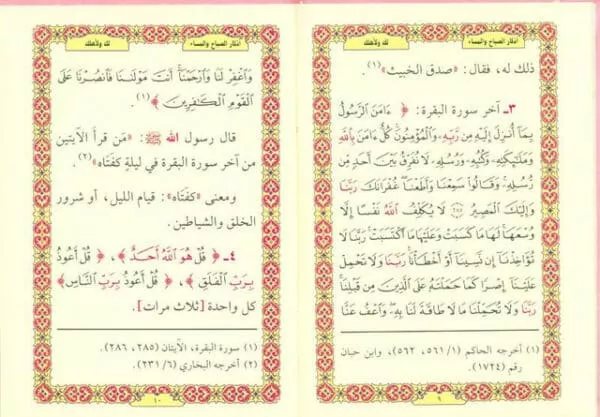 أذكار الصباح والمساء
لك ولأهلك
ذلك له، فقال: «صدق الخبيث»(١).
٣- آخر سورة البقرة: ﴿ ءَامَنَ ٱلرَّسُولُ
بِمَآ أُنزِلَ إِلَيْهِ مِن رَّبِّهِۦ وَٱلْمُؤْمِنُونَ ۚ كُلٌّ ءَامَنَ بِٱللَّهِ
وَمَلَـٰٓئِكَتِهِۦ وَكُتُبِهِۦ وَرُسُلِهِۦ لَا نُفَرِّقُ بَيْنَ أَحَدٍ مِّن
رُّسُلِهِۦ ۚ وَقَالُوا۟ سَمِعْنَا وَأَطَعْنَا ۖ غُفْرَانَكَ رَبَّنَا
وَإِلَيْكَ ٱلْمَصِيرُ ﴿٢٨٥﴾ لَا يُكَلِّفُ ٱللَّهُ نَفْسًا إِلَّا
وُسْعَهَا ۚ لَهَا مَا كَسَبَتْ وَعَلَيْهَا مَا ٱكْتَسَبَتْ ۗ رَبَّنَا لَا
تُؤَاخِذْنَآ إِن نَّسِينَآ أَوْ أَخْطَأْنَا ۚ رَبَّنَا وَلَا تَحْمِلْ
عَلَيْنَآ إِصْرًا كَمَا حَمَلْتَهُۥ عَلَى ٱلَّذِينَ مِن قَبْلِنَا ۚ
رَبَّنَا وَلَا تُحَمِّلْنَا مَا لَا طَاقَةَ لَنَا بِهِۦ ۖ وَٱعْفُ عَنَّا
(١) أخرجه الحاكم (٥٦١/١، ٥٦٢)، وابن حبان
رقم (١٧٢٤).
٩
أذكار الصباح والمساء
لك ولأهلك
وَٱغْفِرْ لَنَا وَٱرْحَمْنَآ ۚ أَنتَ مَوْلَىٰنَا فَٱنصُرْنَا عَلَى
ٱلْقَوْمِ ٱلْكَـٰفِرِينَ ﴾(١).
قال رسول الله ﷺ: «مَن قرأ الآيتين
من آخر سورة البقرة في ليلةٍ كفتَاه»(٢).
ومعنى «كفتَاه»: قيام الليل، أو شرور
الخلق والشياطين.
٤- ﴿ قُلْ هُوَ ٱللَّهُ أَحَدٌ ﴾، ﴿ قُلْ أَعُوذُ
بِرَبِّ ٱلْفَلَقِ ﴾، ﴿ قُلْ أَعُوذُ بِرَبِّ ٱلنَّاسِ ﴾
كل واحدة [ثلاث مرات].
(١) سورة البقرة، الآيتان (٢٨٥، ٢٨٦).
(٢) أخرجه البخاري (٢٣١/٦).
١٠